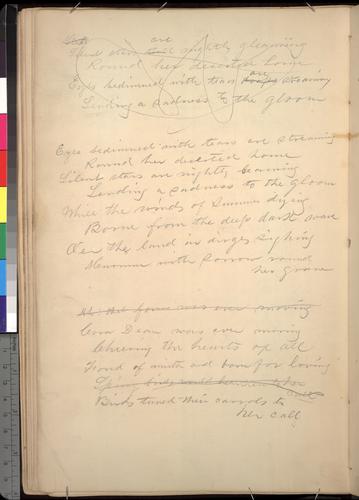 are
nightly gleaming
Round her deserted home
are
Eyes bedimmed with tears streaming
Lending a sadness to the gloom
Eyes bedimmed with tears are streaming
Round her deserted home
Silent stars are nightly beaming
Lending a sadness to the gloom
While the winds of Summer dying
Borne from the deep dark wave
O'er the land in dirges sighing
Murmur with sorrow round
her grave
form was ever moving
Cora Dean was ever moving
Cheering the hearts of all
Fond of mirth and born for loving
Birds tuned their carrols to
her call